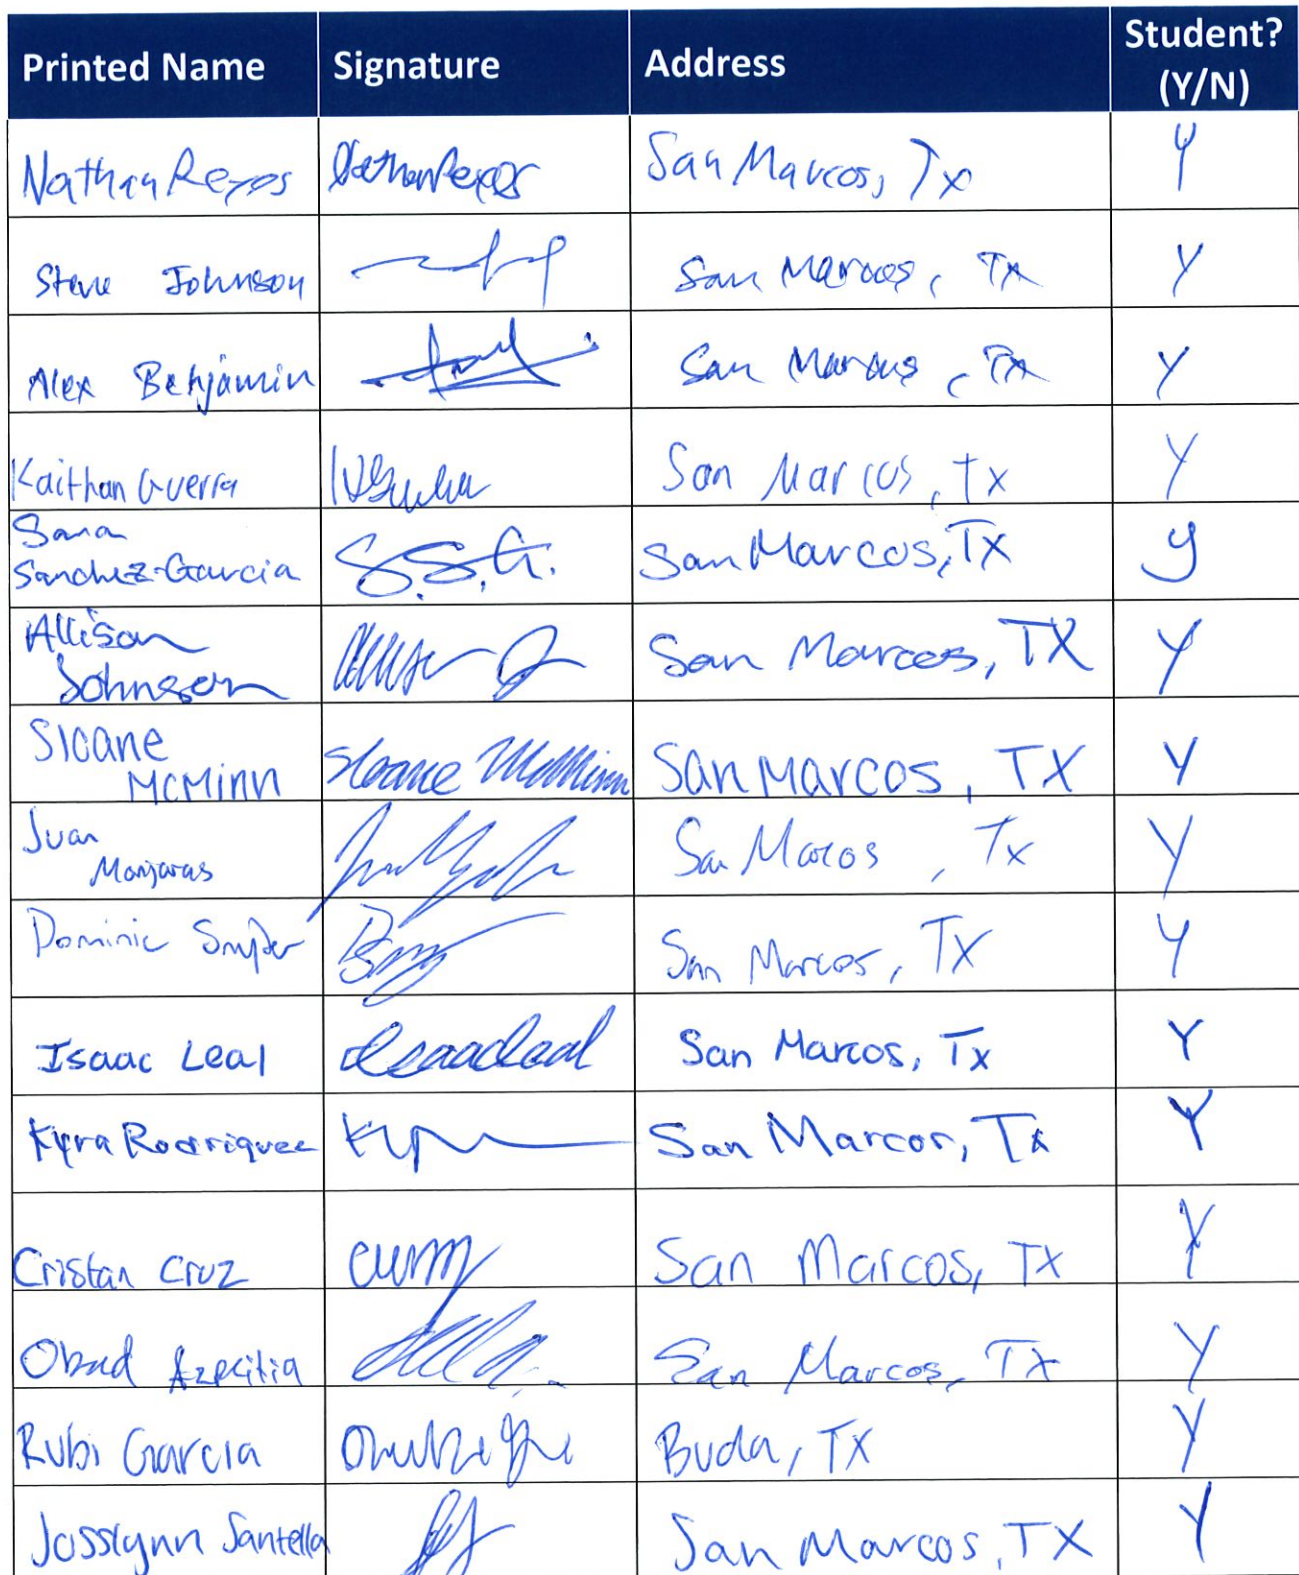 Printed Name Signature Address Student? (Y/N)
Nathan Reyes Nathan Reyes San Marcos, Tx Y
Steve Johnson San Marcos, Tx Y
Alex Benjamin San Marcos, Tx Y
Kaithan Guerra San Marcos, Tx Y
Sara
Sanchez-Garcia S.S.G. San Marcos, Tx y
Allison
Johnson San Marcos, TX Y
Sloane
McMinn Sloane McMinn San Marcos, TX Y
Juan
Manjaras San Marcos, Tx Y
Dominic Snyder San Marcos, TX Y
Isaac Leal Isaac Leal San Marcos, Tx Y
Kyra Rodriguez San Marcos, Tx Y
Cristan Cruz San Marcos, TX Y
Obed Azpeitia San Marcos, TX Y
Rubi Garcia Buda, TX Y
Josslynn Santella San Marcos, TX Y